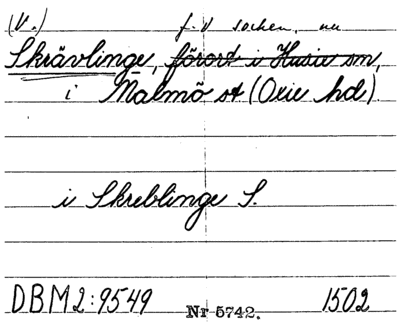 (V.) f.d socken, nu
Skrävlinge, förort i Husie sn,
i Malmö st (Oxie hd)
i Skreblinge S.
DBM 2:9549 Nr 5742. 1502